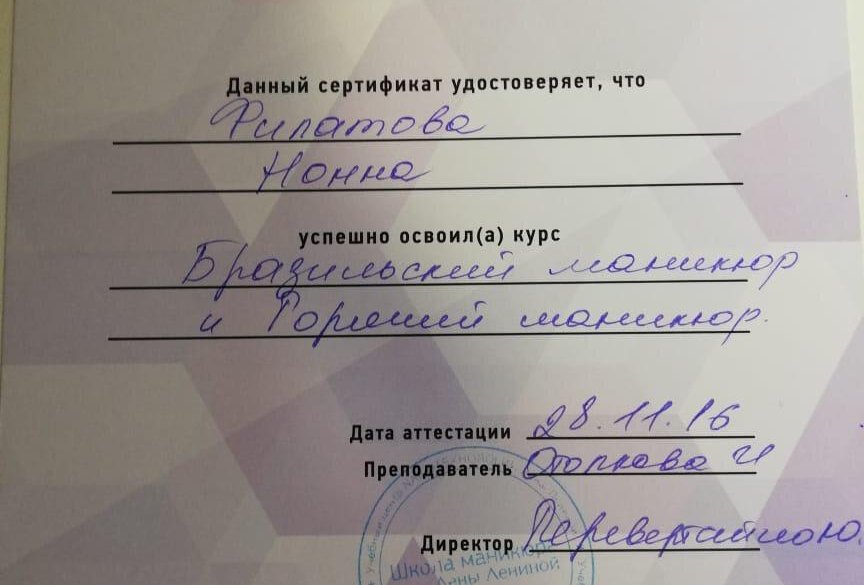 Данный сертификат удостоверяет, что
Филатова
Нонна
успешно освоил(а) курс
Бразильский маникюр
и Горячий маникюр.
Дата аттестации 28.11.16
Преподаватель И
Директор
Учебный центр
Школа маникюра
Лены Лениной